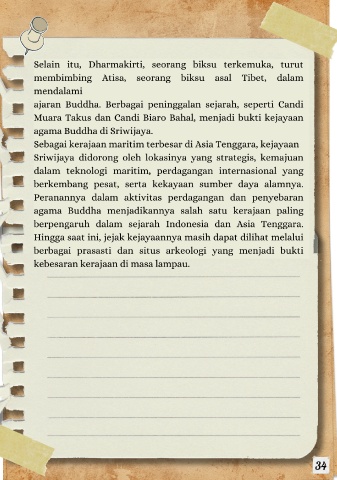 Selain itu, Dharmakirti, seorang biksu terkemuka, turut
membimbing Atisa, seorang biksu asal Tibet, dalam
mendalami
ajaran Buddha. Berbagai peninggalan sejarah, seperti Candi
Muara Takus dan Candi Biaro Bahal, menjadi bukti kejayaan
agama Buddha di Sriwijaya.
Sebagai kerajaan maritim terbesar di Asia Tenggara, kejayaan
Sriwijaya didorong oleh lokasinya yang strategis, kemajuan
dalam teknologi maritim, perdagangan internasional yang
berkembang pesat, serta kekayaan sumber daya alamnya.
Peranannya dalam aktivitas perdagangan dan penyebaran
agama Buddha menjadikannya salah satu kerajaan paling
berpengaruh dalam sejarah Indonesia dan Asia Tenggara.
Hingga saat ini, jejak kejayaannya masih dapat dilihat melalui
berbagai prasasti dan situs arkeologi yang menjadi bukti
kebesaran kerajaan di masa lampau.
34